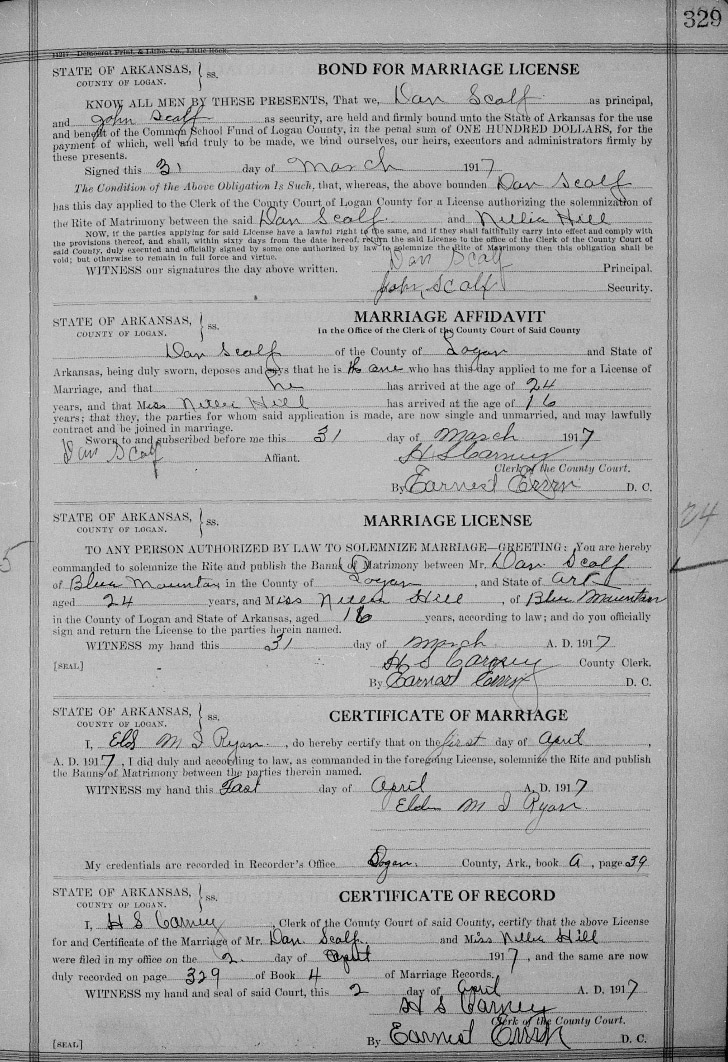 329
Democrat Print. & Litho. Co., Little Rock.
STATE OF ARKANSAS,
COUNTY OF LOGAN.
ss.
BOND FOR MARRIAGE LICENSE
KNOW ALL MEN BY THESE PRESENTS, That we, Dan Scalf as principal,
and John Scalf as security, are held and firmly bound unto the State of Arkansas for the use
and benefit of the Common School Fund of Logan County, in the penal sum of ONE HUNDRED DOLLARS, for the
payment of which, well and truly to be made, we bind ourselves, our heirs, executors and administrators firmly by
these presents.
Signed this 31 day of March 1917
The Condition of the Above Obligation Is Such, that, whereas, the above bounden Dan Scalf
has this day applied to the Clerk of the County Court of Logan County for a License authorizing the solemnization of
the Rite of Matrimony between the said Dan Scalf and Nillia Hill
NOW, if the parties applying for said License have a lawful right to the same, and if they shall faithfully carry into effect and comply with
the provisions thereof, and shall, within sixty days from the date hereof, return the said License to the office of the Clerk of the County Court of
said County, duly executed and officially signed by some one authorized by law to solemnize the Rite of Matrimony then this obligation shall be
void; but otherwise to remain in full force and virtue.
Dan Scalf
WITNESS our signatures the day above written. Principal.
John Scalf Security.
STATE OF ARKANSAS,
COUNTY OF LOGAN.
ss.
MARRIAGE AFFIDAVIT
In the Office of the Clerk of the County Court of Said County
Dan Scalf of the County of Logan and State of
Arkansas, being duly sworn, deposes and says that he is the one who has this day applied to me for a License of
Marriage, and that he has arrived at the age of 24
years, and that Miss Nillia Hill has arrived at the age of 16
years; that they, the parties for whom said application is made, are now single and unmarried, and may lawfully
contract and be joined in marriage.
Sworn to and subscribed before me this 31 day of March 1917
Dan Scalf Affiant. H S Carney
Clerk of the County Court.
By Earnest D. C.
STATE OF ARKANSAS,
COUNTY OF LOGAN.
ss.
MARRIAGE LICENSE
24
TO ANY PERSON AUTHORIZED BY LAW TO SOLEMNIZE MARRIAGE—GREETING: You are hereby
5
commanded to solemnize the Rite and publish the Banns of Matrimony between Mr. Dan Scalf
of Blue Mountain in the County of Logan, and State of Ark
aged 24 years, and Miss Nillia Hill, of Blue Mountain
in the County of Logan and State of Arkansas, aged 16 years, according to law; and do you officially
sign and return the License to the parties herein named.
WITNESS my hand this 31 day of March A. D. 1917
[SEAL] H S Carney County Clerk.
By Earnest D. C.
STATE OF ARKANSAS,
COUNTY OF LOGAN.
ss.
CERTIFICATE OF MARRIAGE
I, Eld M I Ryan, do hereby certify that on the first day of April,
A. D. 1917, I did duly and according to law, as commanded in the foregoing License, solemnize the Rite and publish
the Banns of Matrimony between the parties therein named.
WITNESS my hand this Fast day of April A. D. 1917
Elder M I Ryan
My credentials are recorded in Recorder's Office Logan. County, Ark., book A, page 39
STATE OF ARKANSAS,
COUNTY OF LOGAN.
ss.
CERTIFICATE OF RECORD
I, H S Carney, Clerk of the County Court of said County, certify that the above License
for and Certificate of the Marriage of Mr. Dan Scalf and Miss Nillia Hill
were filed in my office on the 2. day of April 1917, and the same are now
duly recorded on page 329 of Book 4 of Marriage Records.
WITNESS my hand and seal of said Court, this 2 day of April A. D. 1917
H S Carney
Clerk of the County Court.
[SEAL] By Earnest D. C.